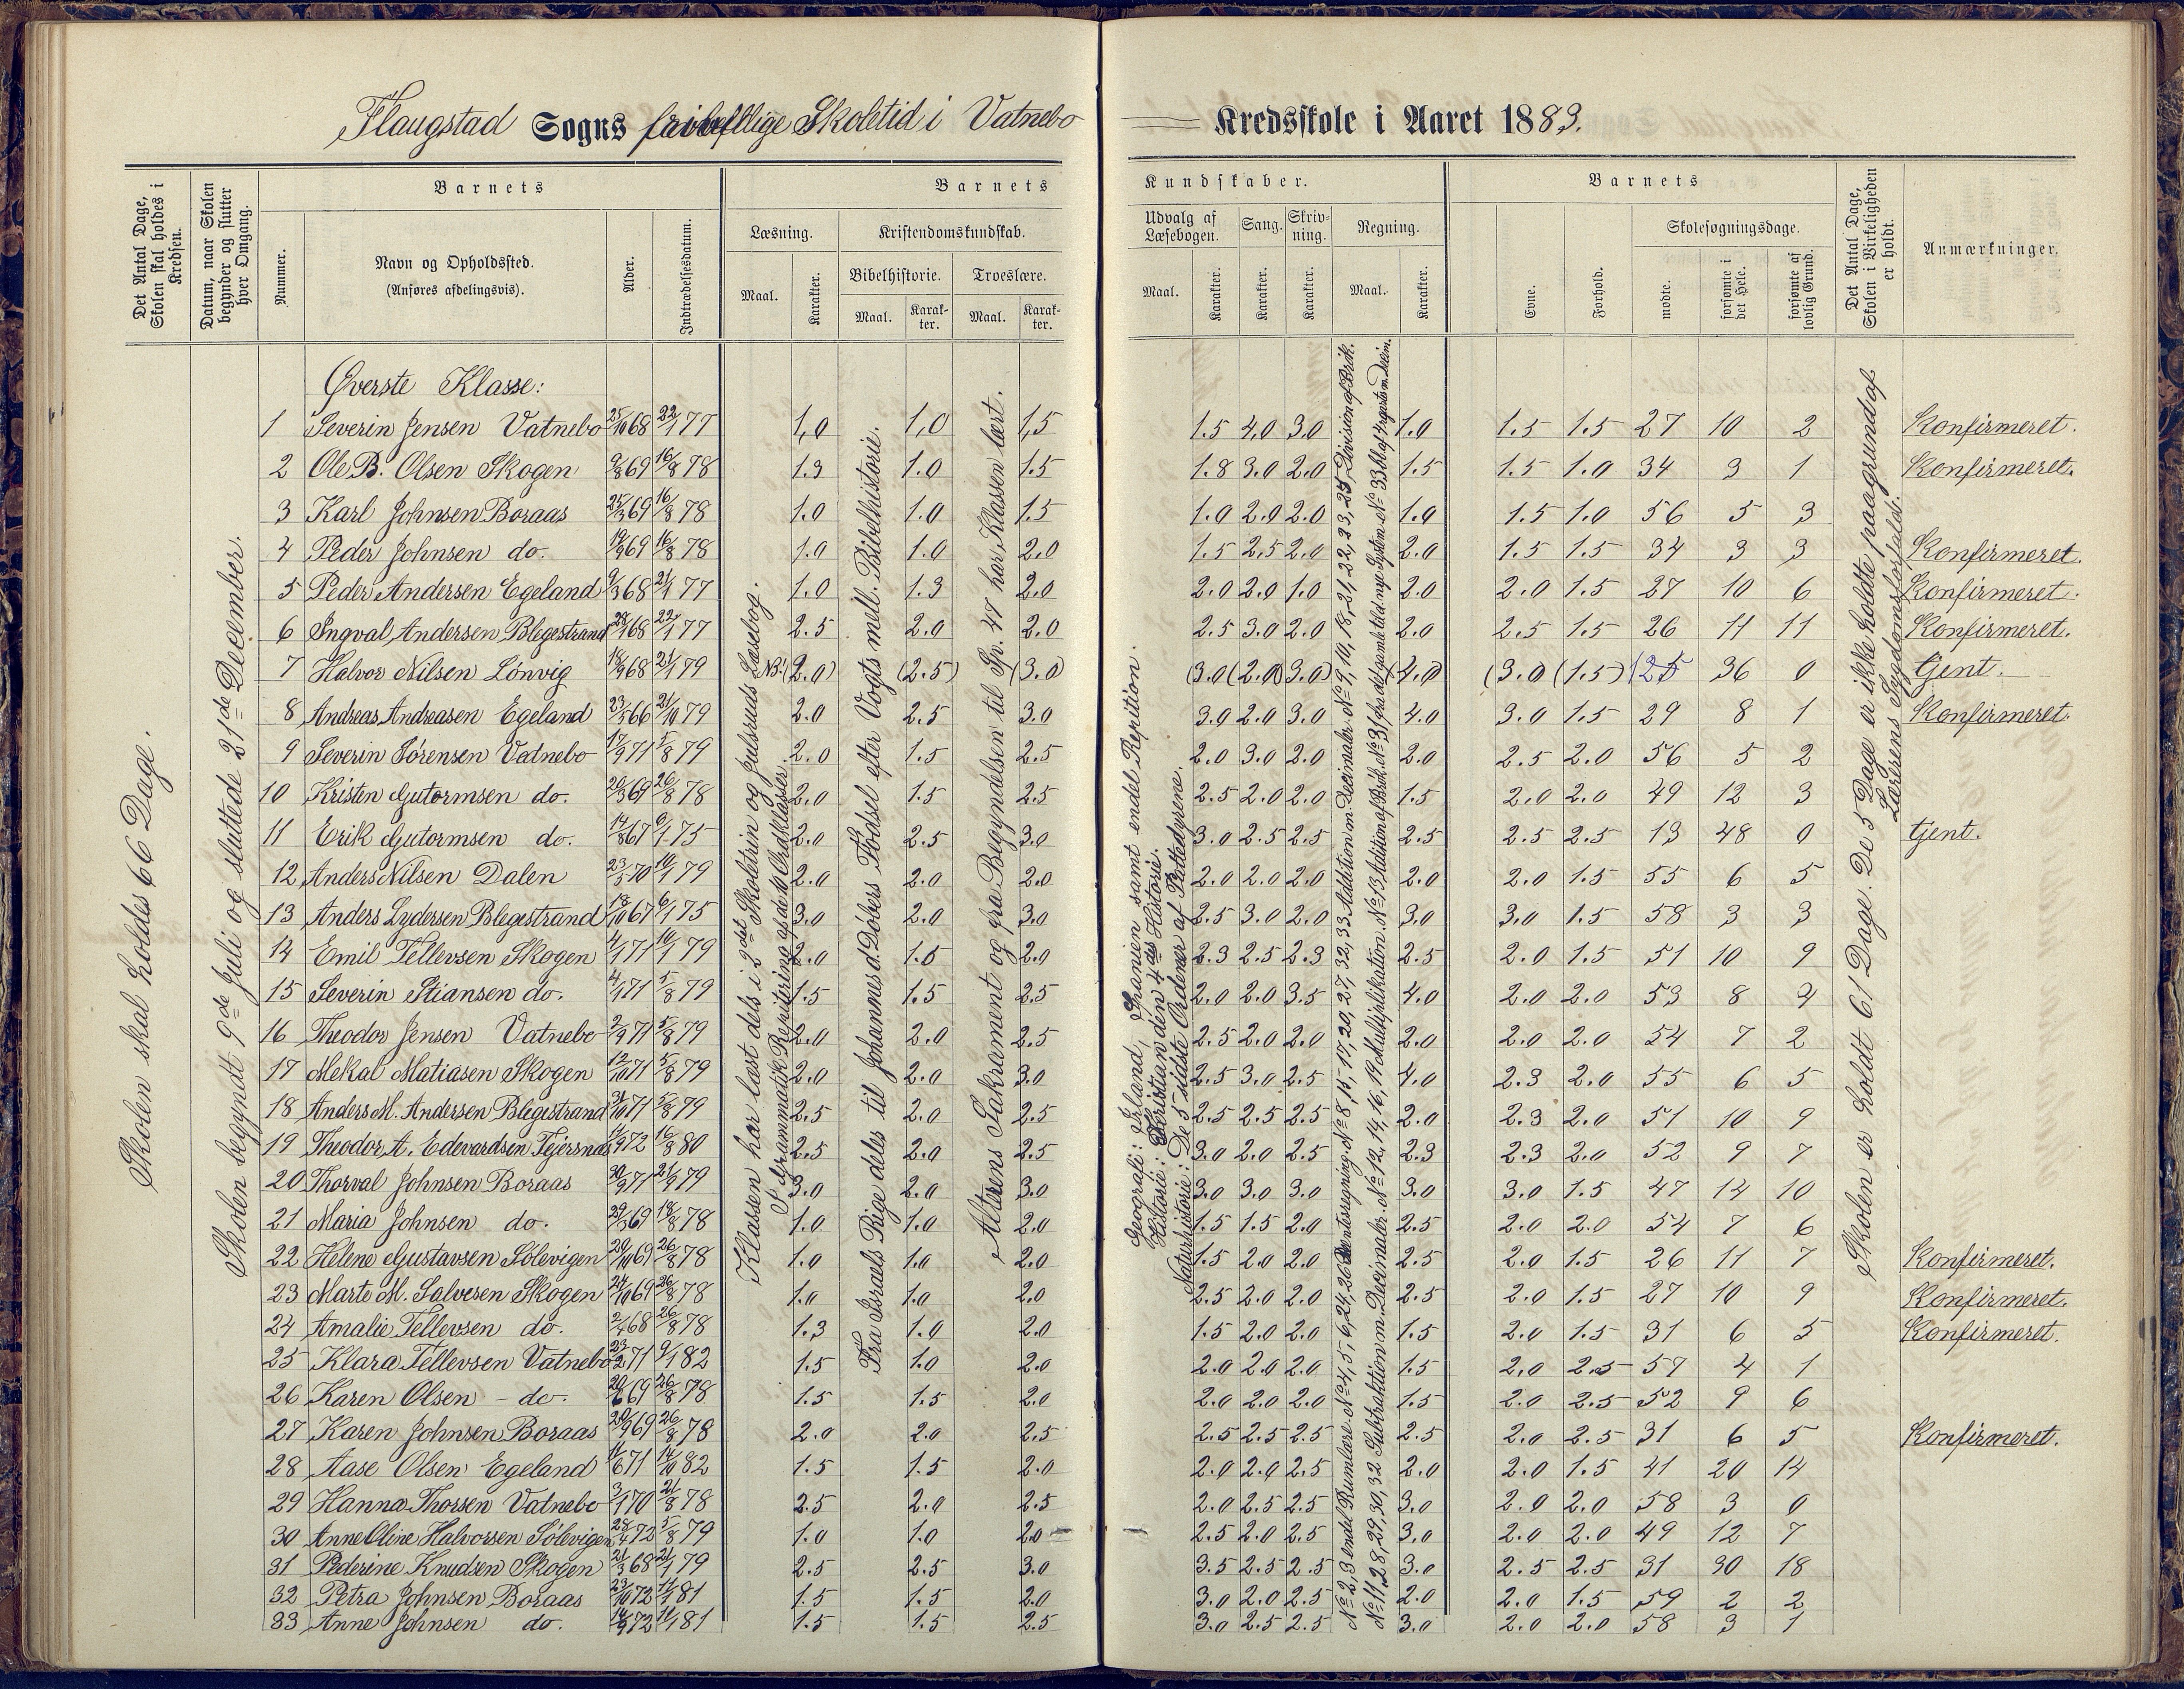 Flaugstad Sogns frivillige Skoletid i Vatnebo Kredsskole i Aaret 1883.
Det Antal Dage, Skolen skal holdes i Kredsen.
Datum, naar Skolen begynder og slutter hver Omgang.
Barnets
Nummer.
Navn og Opholdssted.
(Anføres afdelingsvis).
Alder.
Indtrædelsesdatum.
Barnets Kundskaber.
Læsning.
Maal. Karakter.
Kristendomskundskab.
Bibelhistorie. Troeslære.
Maal. Karakter. Maal. Karakter.
Udvalg af Læsebogen. Sang. Skrivning. Regning.
Maal. Karakter. Karakter. Karakter. Maal. Karakter.
Barnets
Evne. Forhold.
Skolesøgningsdage.
mødte. forsømte i det Hele. forsømte af lovlig Grund.
Det Antal Dage, Skolen i Virkeligheden er holdt.
Anmærkninger.
Skolen skal holdes 66 Dage.
Skolen begyndt 9de Juli og sluttede 21de December.
Klassen har læst dels i 2det Skoletrin og Julsruds Læsebog.
Fra Israels Rige deles til Johannes d. Døbers Fødsel efter Vogts mell. Bibelhistorie.
Altrens Sakrament og fra Begyndelsen til Sp. 47 har Klassen lært.
Geografi: Irland, Spanien samt endel Repition.
Historie: Kristian den 4des Historie.
Naturhistorie: De 5 sidste Ordener af Pattedyrene.
Skolen er holdt 61 Dage. De 5 Dage er ikke holdte paagrund af Lærerens Sygdomsforfald.
Øverste Klasse:
1 Severin Jensen Vatnebo 25/10 68 22/1 77 1,0 1,0 1,5 1.5 4,0 3.0 1.0 1.5 1.5 27 10 2 Konfirmeret.
2 Ole B. Olsen Skogen 9/8 69 16/8 78 1.3 1.0 1.5 1.8 3.0 2.0 1.5 1.5 1.0 34 3 1 Konfirmeret.
3 Karl Johnsen Boraas 25/3 69 16/8 78 1.0 1.0 1.5 1.0 2.0 2.0 1.0 1.5 1.0 56 5 3
4 Peder Johnsen do. 19/9 69 16/8 78 1.0 1.0 2.0 1.5 2.5 2.0 2.0 1.5 1.5 34 3 3 Konfirmeret.
5 Peder Andersen Egeland 9/3 68 21/1 77 1.0 1.3 2.0 2.0 2.0 1.0 2.0 2.0 1.5 27 10 6 Konfirmeret.
6 Ingval Andersen Blegestrand 68 22/1 77 2.5 2.0 2.0 2.5 3.0 2.0 2.0 2.5 1.5 26 11 11 Konfirmeret.
7 Halvor Nilsen Lønvig 18/9 68 21/1 79 (2.0) (2.5) (3.0) (3.0) (2.0) (3.0) (4.0) (3.0) (1.5) 25 36 0 tjent.
8 Andreas Andreasen Egeland 23/5 66 21/10 79 2.0 2.5 3.0 3.0 2.0 3.0 4.0 3.0 1.5 29 8 1 Konfirmeret.
9 Severin Sørensen Vatnebo 17/9 71 5/8 79 2.0 1.5 2.5 2.0 3.0 2.0 2.0 2.5 2.0 56 5 2
10 Kristen Gutormsen do. 20/3 69 26/8 78 2.0 1.5 2.5 2.5 2.0 2.0 1.5 2.0 2.0 49 12 3
11 Erik Gutormsen do. 14/8 67 6/1 75 2.0 2.5 3.0 3.0 2.5 2.5 2.5 2.5 2.5 13 48 0 tjent.
12 Anders Nilsen Dalen 23/5 70 10/1 79 2.0 2.0 2.0 2.0 2.0 2.0 2.0 2.0 1.5 55 6 5
13 Anders Lydersen Blegestrand 18/10 67 6/1 75 3.0 2.0 3.0 2.5 3.0 2.0 3.0 3.0 1.5 58 3 3
14 Emil Tellevsen Skogen 4/1 71 10/1 79 2.0 1.5 2.0 2.3 2.5 2.3 2.5 2.0 1.5 51 10 9
15 Severin Stiansen do. 4/1 71 5/8 79 1.5 1.5 2.5 2.0 2.0 3.5 4.0 2.0 2.0 53 8 4
16 Theodor Jensen Vatnebo 2/9 71 5/8 79 2.0 2.0 2.5 2.5 2.0 2.0 2.0 2.0 2.0 54 7 2
17 Mekal Matiasen Skogen 12/10 71 5/8 79 2.0 2.0 3.0 2.5 3.0 2.5 4.0 2.3 2.0 55 6 5
18 Anders M. Andersen Blegestrand 71 5/8 79 2.5 2.0 2.5 2.5 2.5 2.5 2.0 2.3 2.0 51 10 9
19 Theodor A. Edevardsen 72 16/8 80 2.5 2.0 2.5 3.0 2.0 2.5 2.3 2.3 2.0 52 9 7
20 Thorval Johnsen Boraas 30/9 71 21/9 79 3.0 2.0 3.0 3.0 3.0 3.0 3.0 3.0 1.5 47 14 10
21 Maria Johnsen do. 69 18/8 78 1.0 1.0 2.0 1.5 1.5 2.0 2.5 2.0 2.0 54 7 6
22 Helene Gustavsen Sølevigen 20/10 69 26/8 78 1.0 1.0 2.0 1.5 2.0 2.0 2.5 2.0 1.5 26 11 7 Konfirmeret.
23 Marte M. Salvesen Skogen 24/10 69 26/8 78 1.0 1.0 2.0 2.5 2.0 2.0 2.5 2.0 1.5 27 10 9 Konfirmeret.
24 Amalie Tellevsen do. 68 26/8 78 1.3 1.0 2.0 1.5 2.0 2.0 1.5 2.0 1.5 31 6 5 Konfirmeret.
25 Klara Tellevsen Vatnebo 71 9/1 82 1.5 1.0 2.0 2.0 2.0 2.0 1.5 2.0 2.5 57 4 1
26 Karen Olsen - do. 20/6 69 26/8 78 1.5 1.5 2.0 2.0 2.0 2.0 1.5 2.0 2.5 52 9 6
27 Karen Johnsen Boraas 20/9 69 26/8 78 2.0 2.0 2.5 2.5 2.5 2.5 2.5 2.0 2.5 31 6 5 Konfirmeret.
28 Aase Olsen Egeland 11/6 71 14/10 82 1.5 1.5 2.0 2.0 2.0 2.5 2.0 2.0 1.5 41 20 14
29 Hanna Thorsen Vatnebo 3/1 70 21/8 78 2.5 2.0 2.5 2.0 2.5 2.5 3.0 2.0 2.0 58 3 0
30 Anne Oline Halvorsen Sølevigen 28/4 72 5/8 79 1.0 1.0 2.0 2.5 2.0 2.5 3.0 2.0 2.0 49 12 7
31 Pederine Knudsen Skogen 21/3 68 21/1 79 2.5 2.5 3.0 3.5 2.5 2.5 3.0 2.5 2.5 31 30 18
32 Petra Johnsen Boraas 23/10 72 11/1 81 1.5 1.5 2.0 3.0 2.0 2.5 2.0 2.0 1.5 59 2 2
33 Anne Johnsen do. 14/9 72 11/1 81 1.5 1.5 2.5 3.0 2.5 2.5 3.0 2.0 2.0 58 3 1